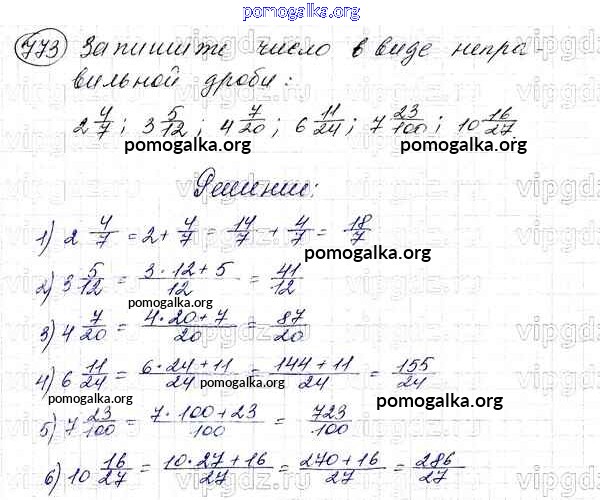 pomogalka.org
773 Запишите число в виде непра-
вильной дроби:
2 4/7; 3 5/12; 4 7/20; 6 11/24; 7 23/100; 10 16/27
pomogalka.org pomogalka.org
Решение:
1) 2 4/7 = 2 + 4/7 = 14/7 + 4/7 = 18/7
pomogalka.org
2) 3 5/12 = 3·12+5/12 = 41/12
pomogalka.org
3) 4 7/20 = 4·20+7/20 = 87/20
pomogalka.org
4) 6 11/24 = 6·24+11/24 = 144+11/24 = 155/24
pomogalka.org pomogalka.org
pomogalka.org
5) 7 23/100 = 7·100+23/100 = 723/100
6) 10 16/27 = 10·27+16/27 = 270+16/27 = 286/27